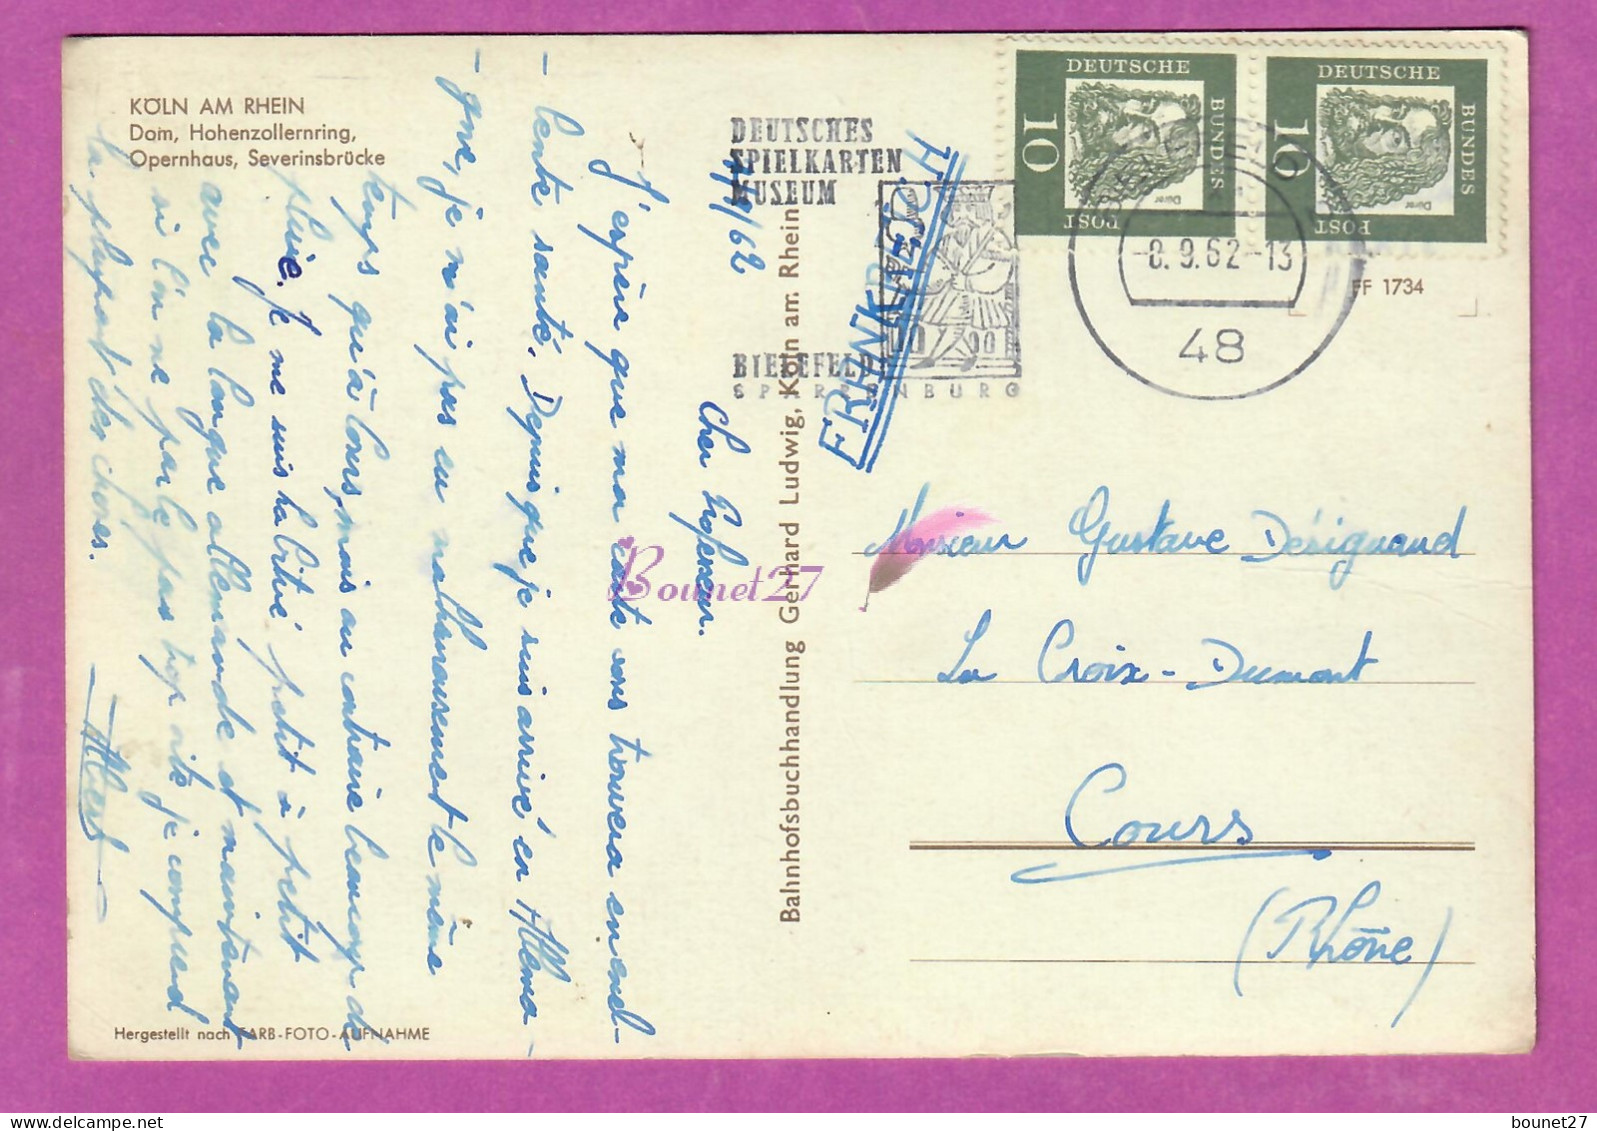 KÖLN AM RHEIN
Dom, Hohenzollernring,
Opernhaus, Severinsbrücke
7/9/62
Cher Professeur.
J'espère que ma carte vous trouvera en excel-
- lente santé. Depuis que je suis arrivé en Allema-
- gne, je n'ai pas eu malheureusement le même
temps qu'à Cours, mais au contraire beaucoup de
pluie. Je me suis habitué petit à petit
avec la langue allemande et maintenant
si l'on ne parle pas trop vite je comprend
la plupart des choses.
Albert
Hergestellt nach FARB-FOTO-AUFNAHME
Bahnhofsbuchhandlung Gerhard Ludwig, Köln am Rhein
DEUTSCHES
SPIELKARTEN
MUSEUM
BIELEFELD
SPARRENBURG
FRANKREICH
DEUTSCHE
BUNDES
POST
10
Dürer
DEUTSCHE
BUNDES
POST
10
Dürer
-8.9.62-13
48
FF 1734
Monsieur Gustave Désignaud
La Croix-Dumont
Cours
(Rhône)
Bounet27
bounet27